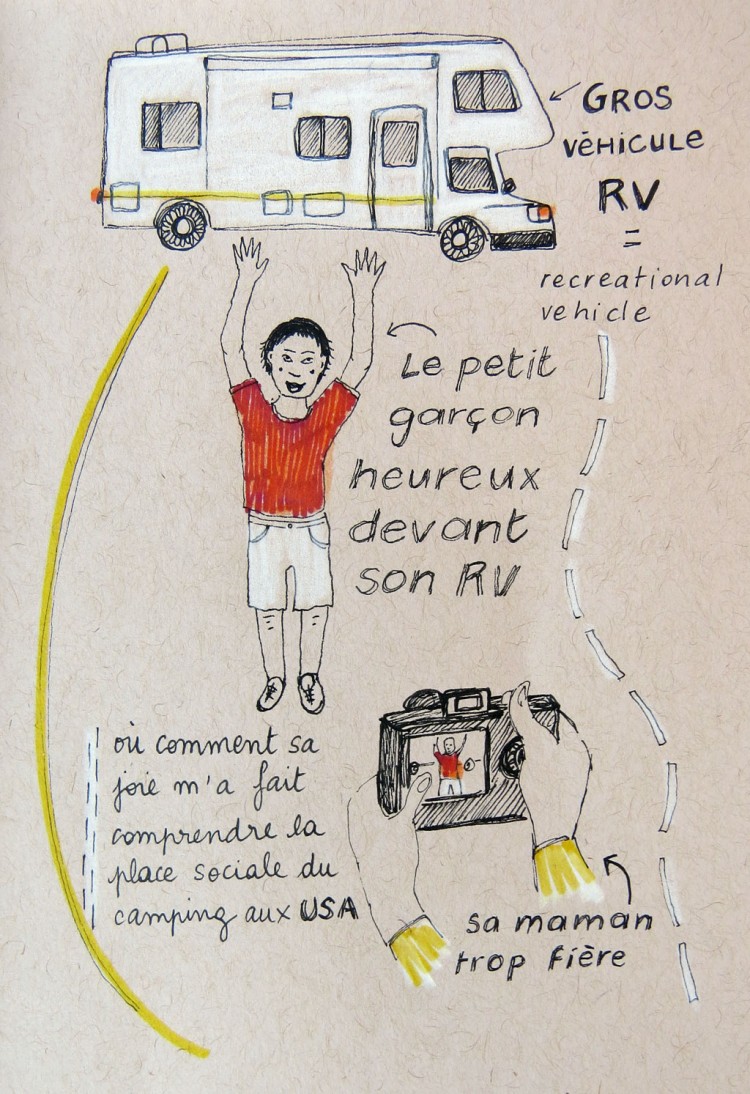 GROS
VÉHICULE
RV
=
recreational
vehicle
Le petit
garçon
heureux
devant
son RV
où comment sa
joie m'a fait
comprendre la
place sociale du
camping aux USA
sa maman
trop fière